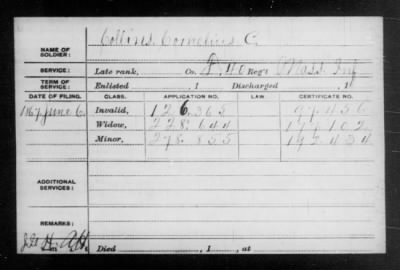 NAME OF SOLDIER: Collins, Cornelius C.
SERVICE: Late rank, Co. D, 40 Reg't Mass Inf
TERM OF SERVICE: Enlisted , 1 Discharged , 1
DATE OF FILING. CLASS. APPLICATION NO. LAW. CERTIFICATE NO.
1867 June 6 Invalid, 126.365 97.456
Widow, 228.644
Minor, 278.855 192.434
ADDITIONAL SERVICES:
REMARKS:
Died , 1 , at